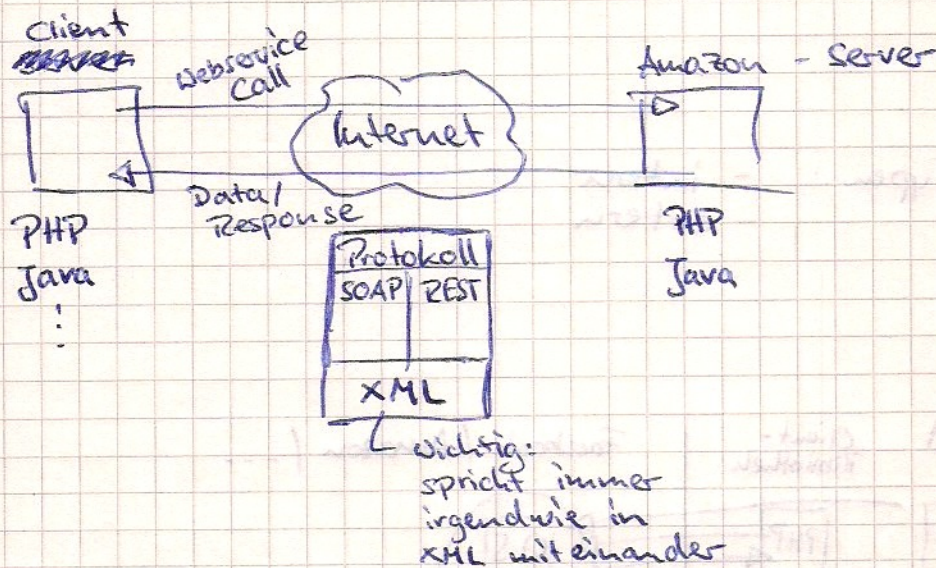 Client
Webservice
Call
Internet
Amazon - Server
Data/
Response
PHP
Java
:
PHP
Java
Protokoll
SOAP | REST
XML
wichtig:
spricht immer
irgendwie in
XML miteinander